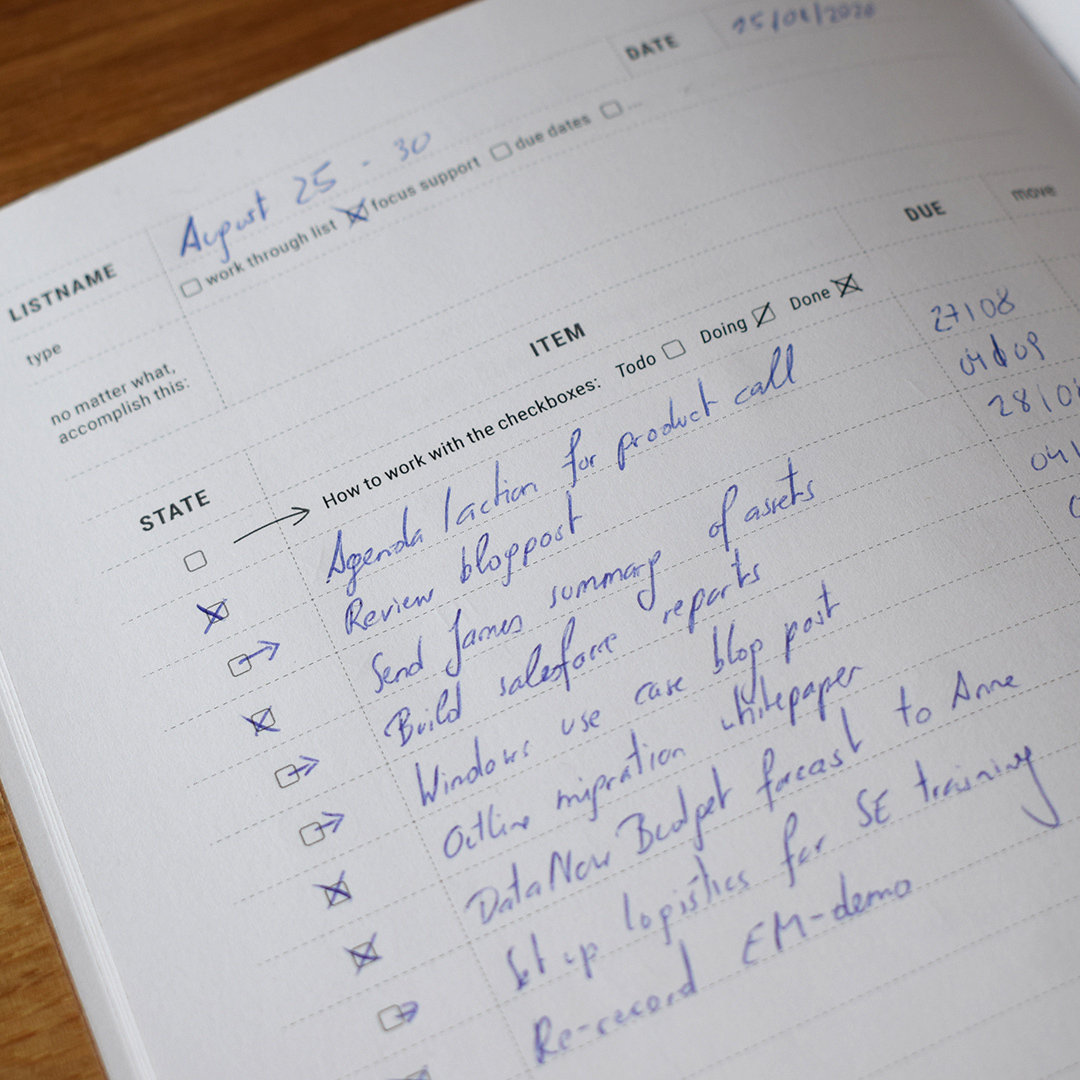 DATE 25/08/2020
LISTNAME August 25 - 30
type work through list focus support due dates ...
no matter what,
accomplish this:
STATE ITEM DUE move
How to work with the checkboxes: Todo Doing Done
Agenda / action for product call 27/08
Review blogpost 01/09
Send James summary of assets 28/08
Build salesforce reports 04/
Windows use case blog post
Outline migration whitepaper
DataNow Budget forcast to Anne
Set up logistics for SE training
Re-record EM-demo